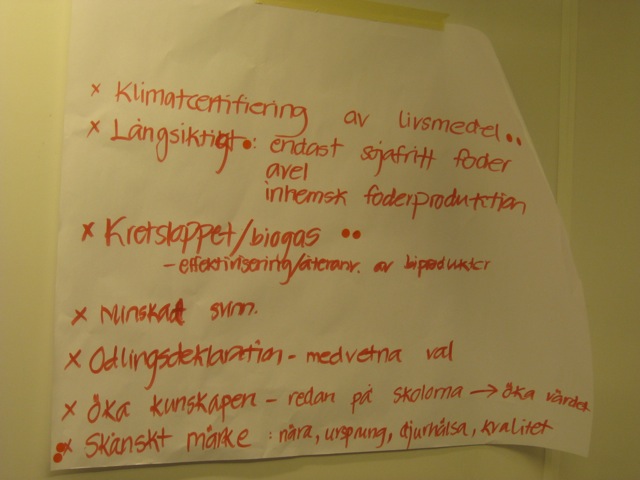 x Klimatcertifiering av livsmedel..
x Långsiktigt.: endast sojafritt foder
avel
inhemsk foderproduktion
x Kretsloppet/biogas ..
- effektivisering/återanv. av biprodukter
x Minskat svinn.
x Odlingsdeklaration - medvetna val
x Öka kunskapen - redan på skolorna → öka värdet
x Skånskt märke : nära, ursprung, djurhälsa, kvalitet